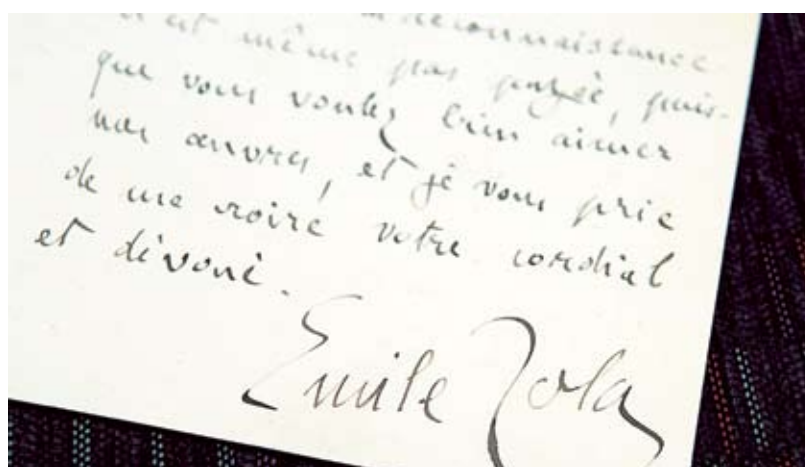 reconnaissance
n'est même pas payée, puis-
que vous voulez bien aimer
nos œuvres, et je vous prie
de me croire votre cordial
et dévoué.
Emile Zola